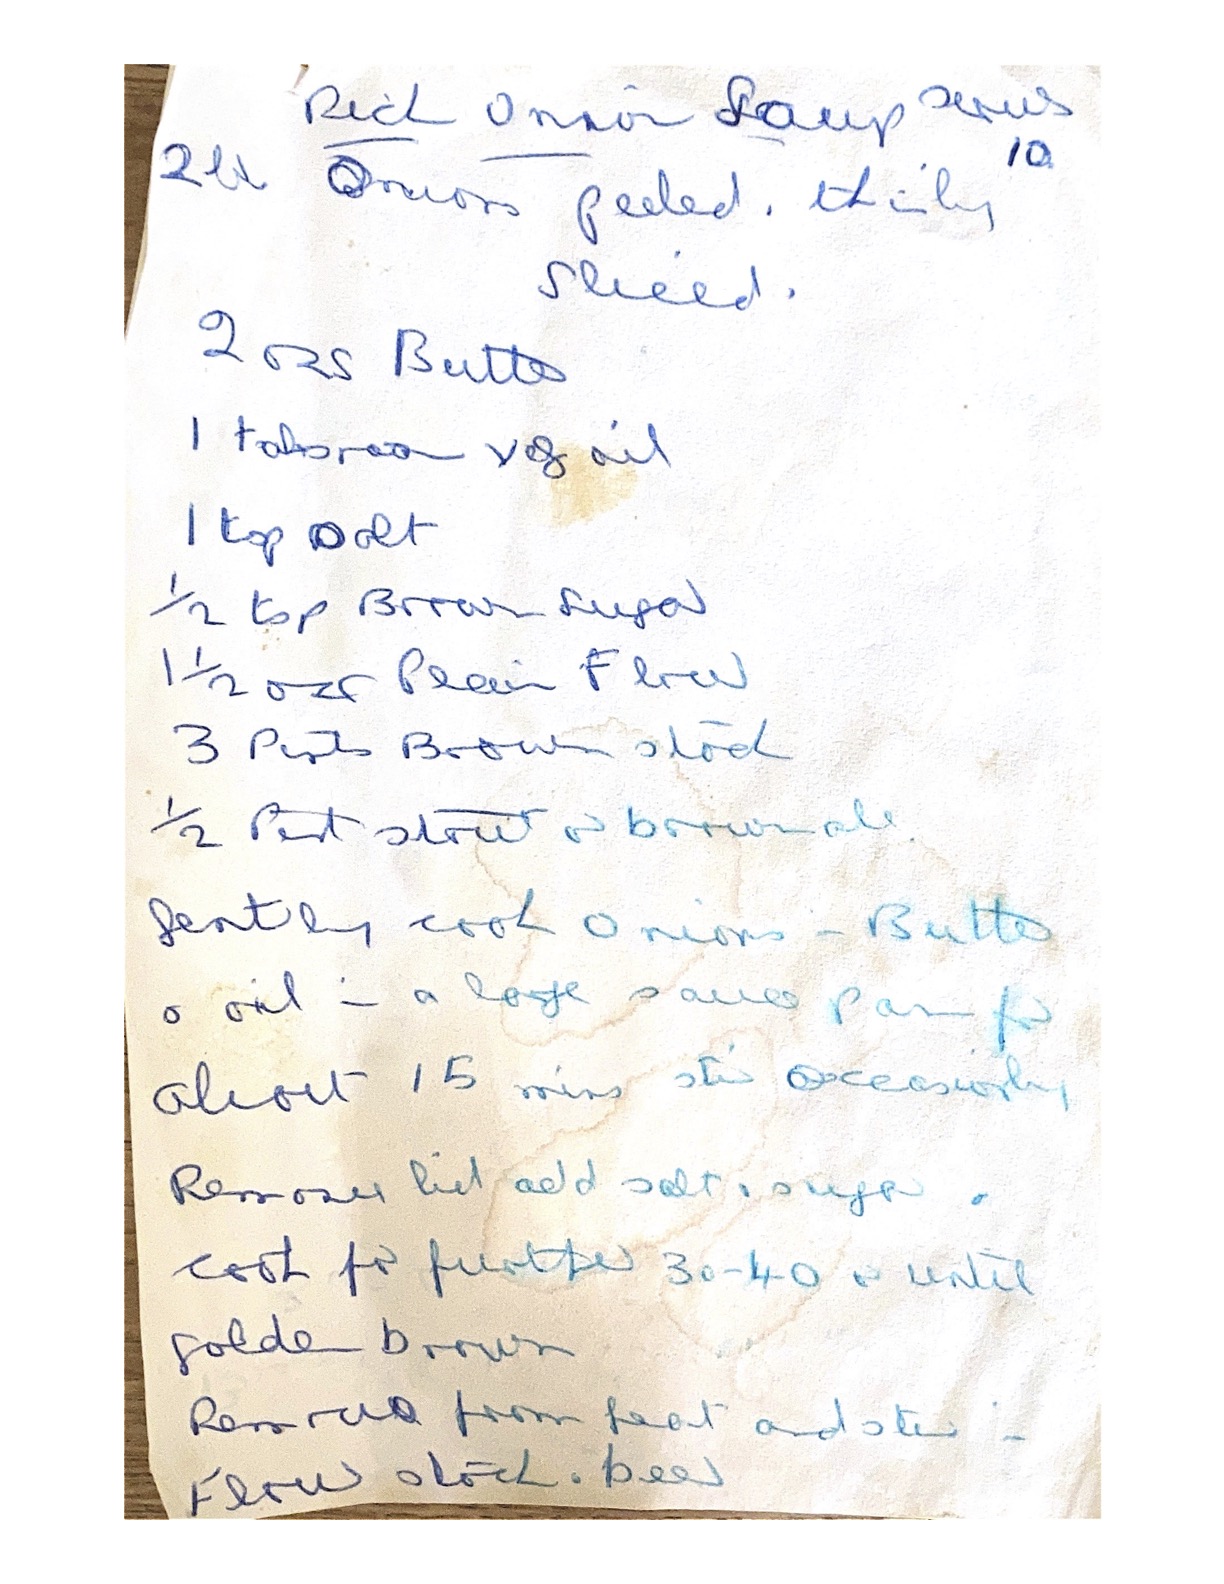 Rich Onion Soup serves
10
2lb Onions peeled. thinly
sliced.
2 ozs Butter
1 tablespoon veg oil
1 tsp salt
1/2 tsp Brown Sugar
1 1/2 ozs Plain Flour
3 Pints Brown stock
1/2 Pint stout or brown ale
Gently cook Onions in Butter
& oil in a large sauce pan for
about 15 mins stir occasionly
Remove lid add salt & sugar &
cook for further 30-40 or until
golden brown
Remove from heat and stir in
Flour stock & beer